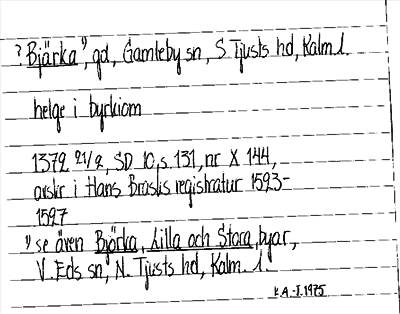 ? Bjärka¹⁾, gd, Gamleby sn, S Tjusts hd, Kalm.l.
helge i byrkiom
1379 21/2, SD 10, s. 131, nr X 144,
avskr i Hans Brasks registratur 1523-
1527
¹⁾ se även Björka, Lilla och Stora, byar,
V. Eds sn, N. Tjusts hd, Kalm. l.
K.A.-I. 1975